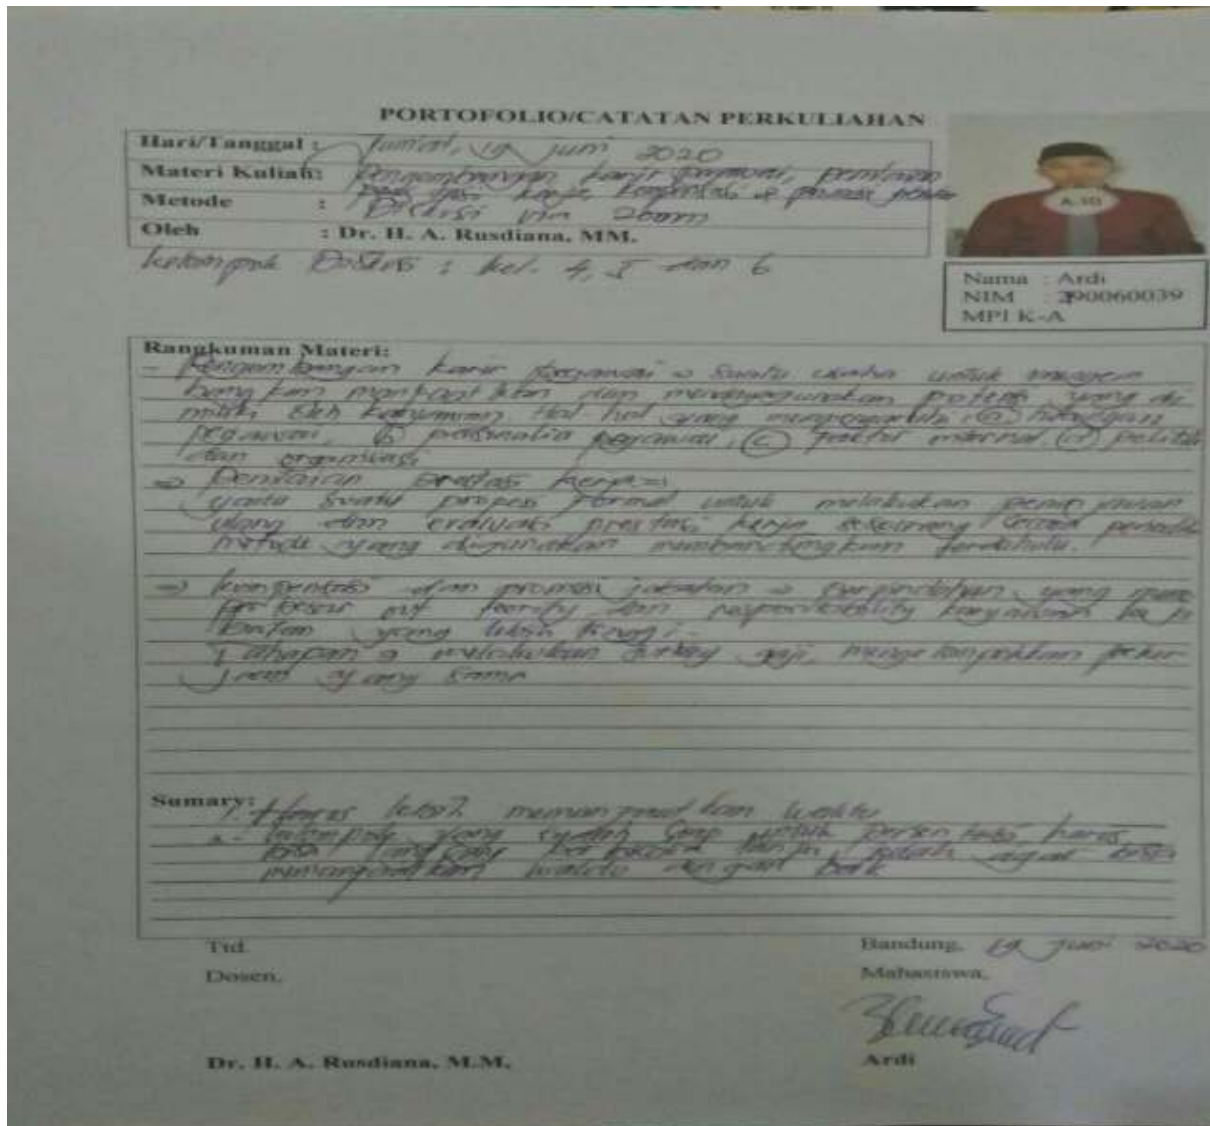 PORTOFOLIO/CATATAN PERKULIAHAN
Hari/Tanggal : Jum'at, 19 juni 2020
Materi Kuliah: Pengembangan karir pegawai, penilaian
kerja, kompensasi & promosi jabatan
Metode : Diskusi via zoom
Oleh : Dr. H. A. Rusdiana, MM.
kelompok Diskusi : kel. 4, 5 dan 6
A.10
Nama : Ardi
NIM : 2190060039
MPI K-A
Rangkuman Materi:
- Pengembangan karir pegawai → Suatu usaha untuk mengem
bangkan manfaatkan dan mendayagunakan potensi yang di
miliki oleh karyawan Hal hal yang mempengaruhi : (a) hubungan
pegawai, (b) personalia pegawai, (c) faktor internal, (d) politik
dan organisasi
⇒ Penilaian prestasi kerja ⇒
yaitu suatu proses formal untuk melakukan peninjauan
ulang dan evaluasi prestasi kerja seseorang secara periodik
metode yang digunakan membandingkan terdahulu.
⇒ kompensasi dan promosi jabatan → perpindahan yang mem
per besar dan responsibility karyawan ke ja
batan yang lebih tinggi.
Tahapan → melakukan survey gaji, mengelompokkan peker
jaan yang sama
Sumary:
1. Harus lebih memanfaatkan waktu
2. kelompok yang sudah siap untuk persentasi harus
bisa agar bisa
memanfaatkan waktu dengan baik
Ttd. Bandung, 19 Juni 2020
Dosen, Mahasiswa,
Dr. H. A. Rusdiana, M.M. Ardi